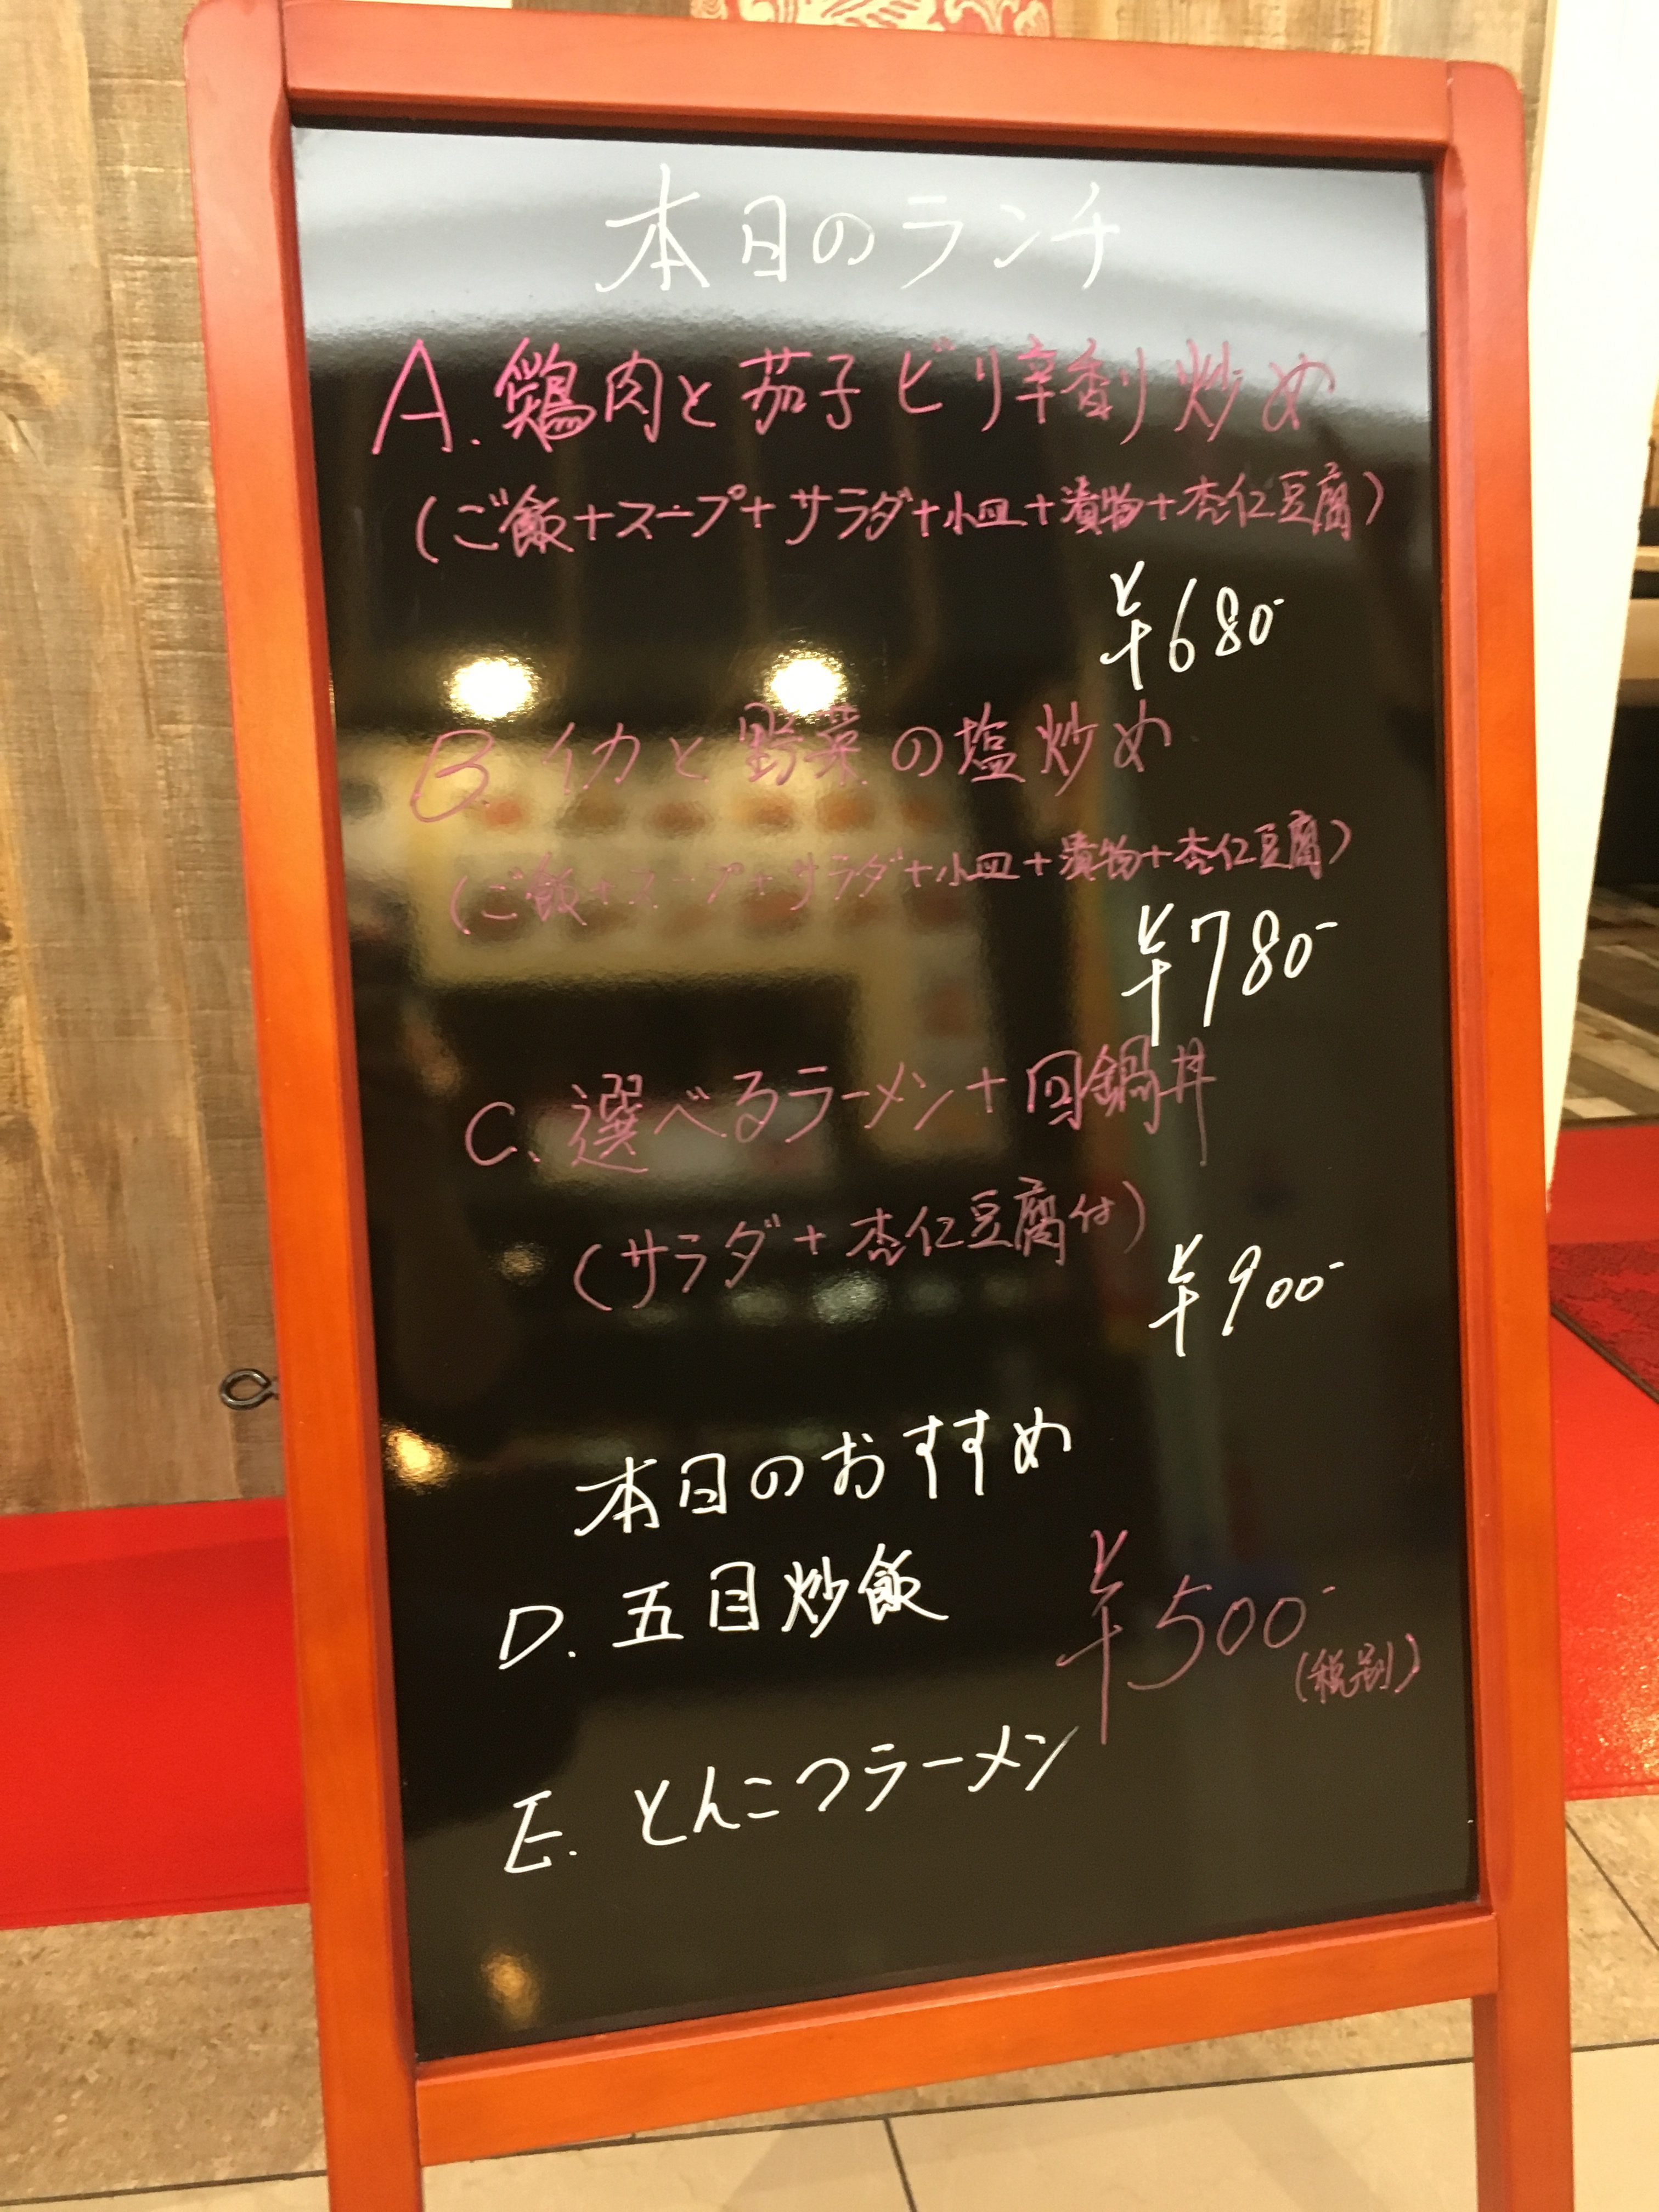 本日のランチ
A.鶏肉と茄子ピリ辛香り炒め
(ご飯+スープ+サラダ+小皿+漬物+杏仁豆腐)
¥680-
B.イカと野菜の塩炒め
(ご飯+スープ+サラダ+小皿+漬物+杏仁豆腐)
¥780-
C.選べるラーメン+回鍋丼
(サラダ+杏仁豆腐付)
¥900-
本日のおすすめ
D.五目炒飯
¥500-
(税別)
E.とんこつラーメン